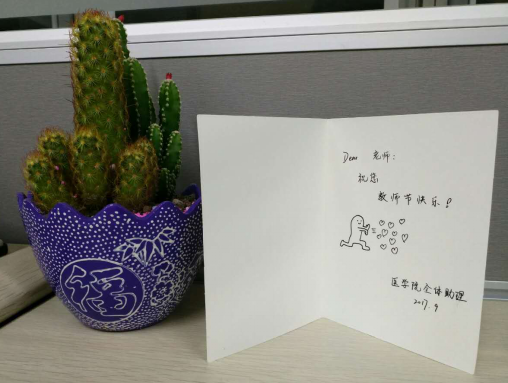 Dear 老师：
祝您
教师节快乐！
医学院全体助理
2017.9
福